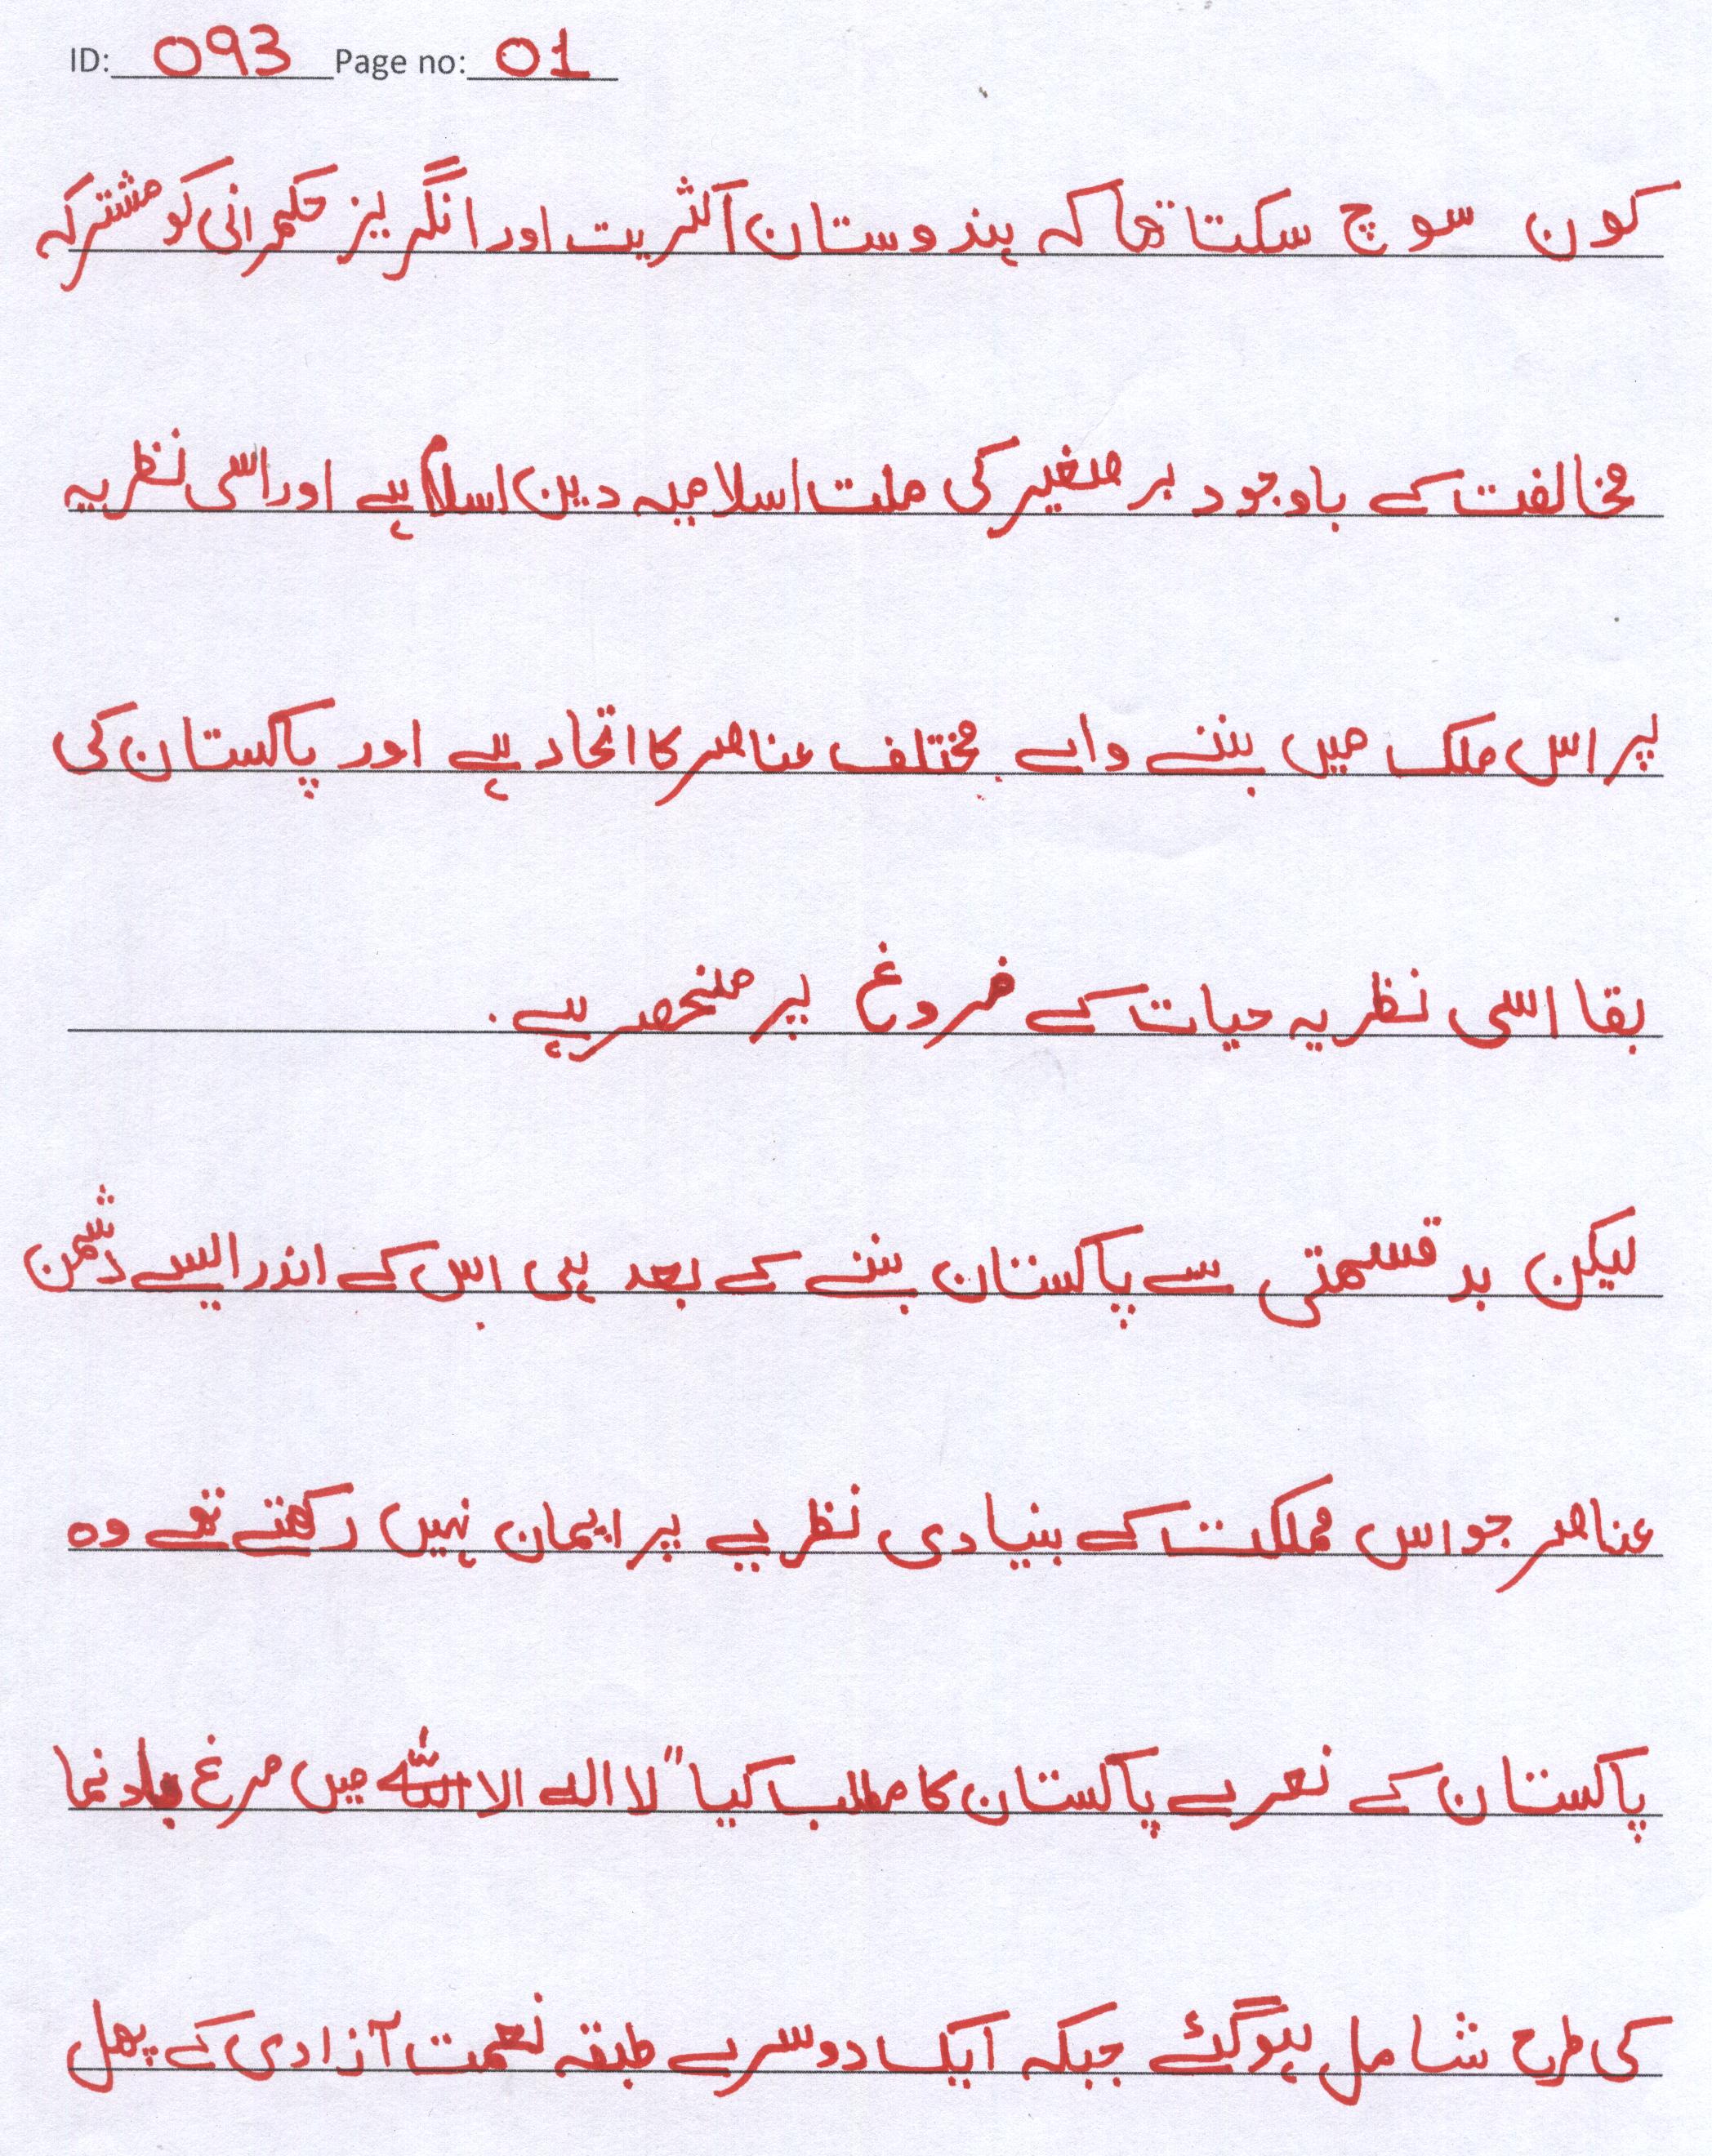 ID: 093 Page no: 01
کون سوچ سکتا تھا کہ ہندوستان اکثریت اور انگریز حکمرانی کو مشترکہ
مخالفت کے باوجود بر صغیر کی ملت اسلامیہ دین اسلام ہے اور اسی نظریہ
پر اس ملک میں بننے والے مختلف عناصر کا اتحاد ہے اور پاکستان کی
بقا اسی نظریہ حیات کے فروغ پر منحصر ہے.
لیکن بد قسمتی سے پاکستان بننے کے بعد ہی اس کے اندر ایسے دشمن
عناصر جو اس مملکت کے بنیادی نظریے پر ایمان نہیں رکھتے تھے وہ
پاکستان کے نعرے پاکستان کا مطلب کیا "لا الہ الا اللہ میں مرغ باد نما
کی طرح شامل ہوگئے جبکہ ایک دوسرے طبقہ نعمت آزادی کے پھل